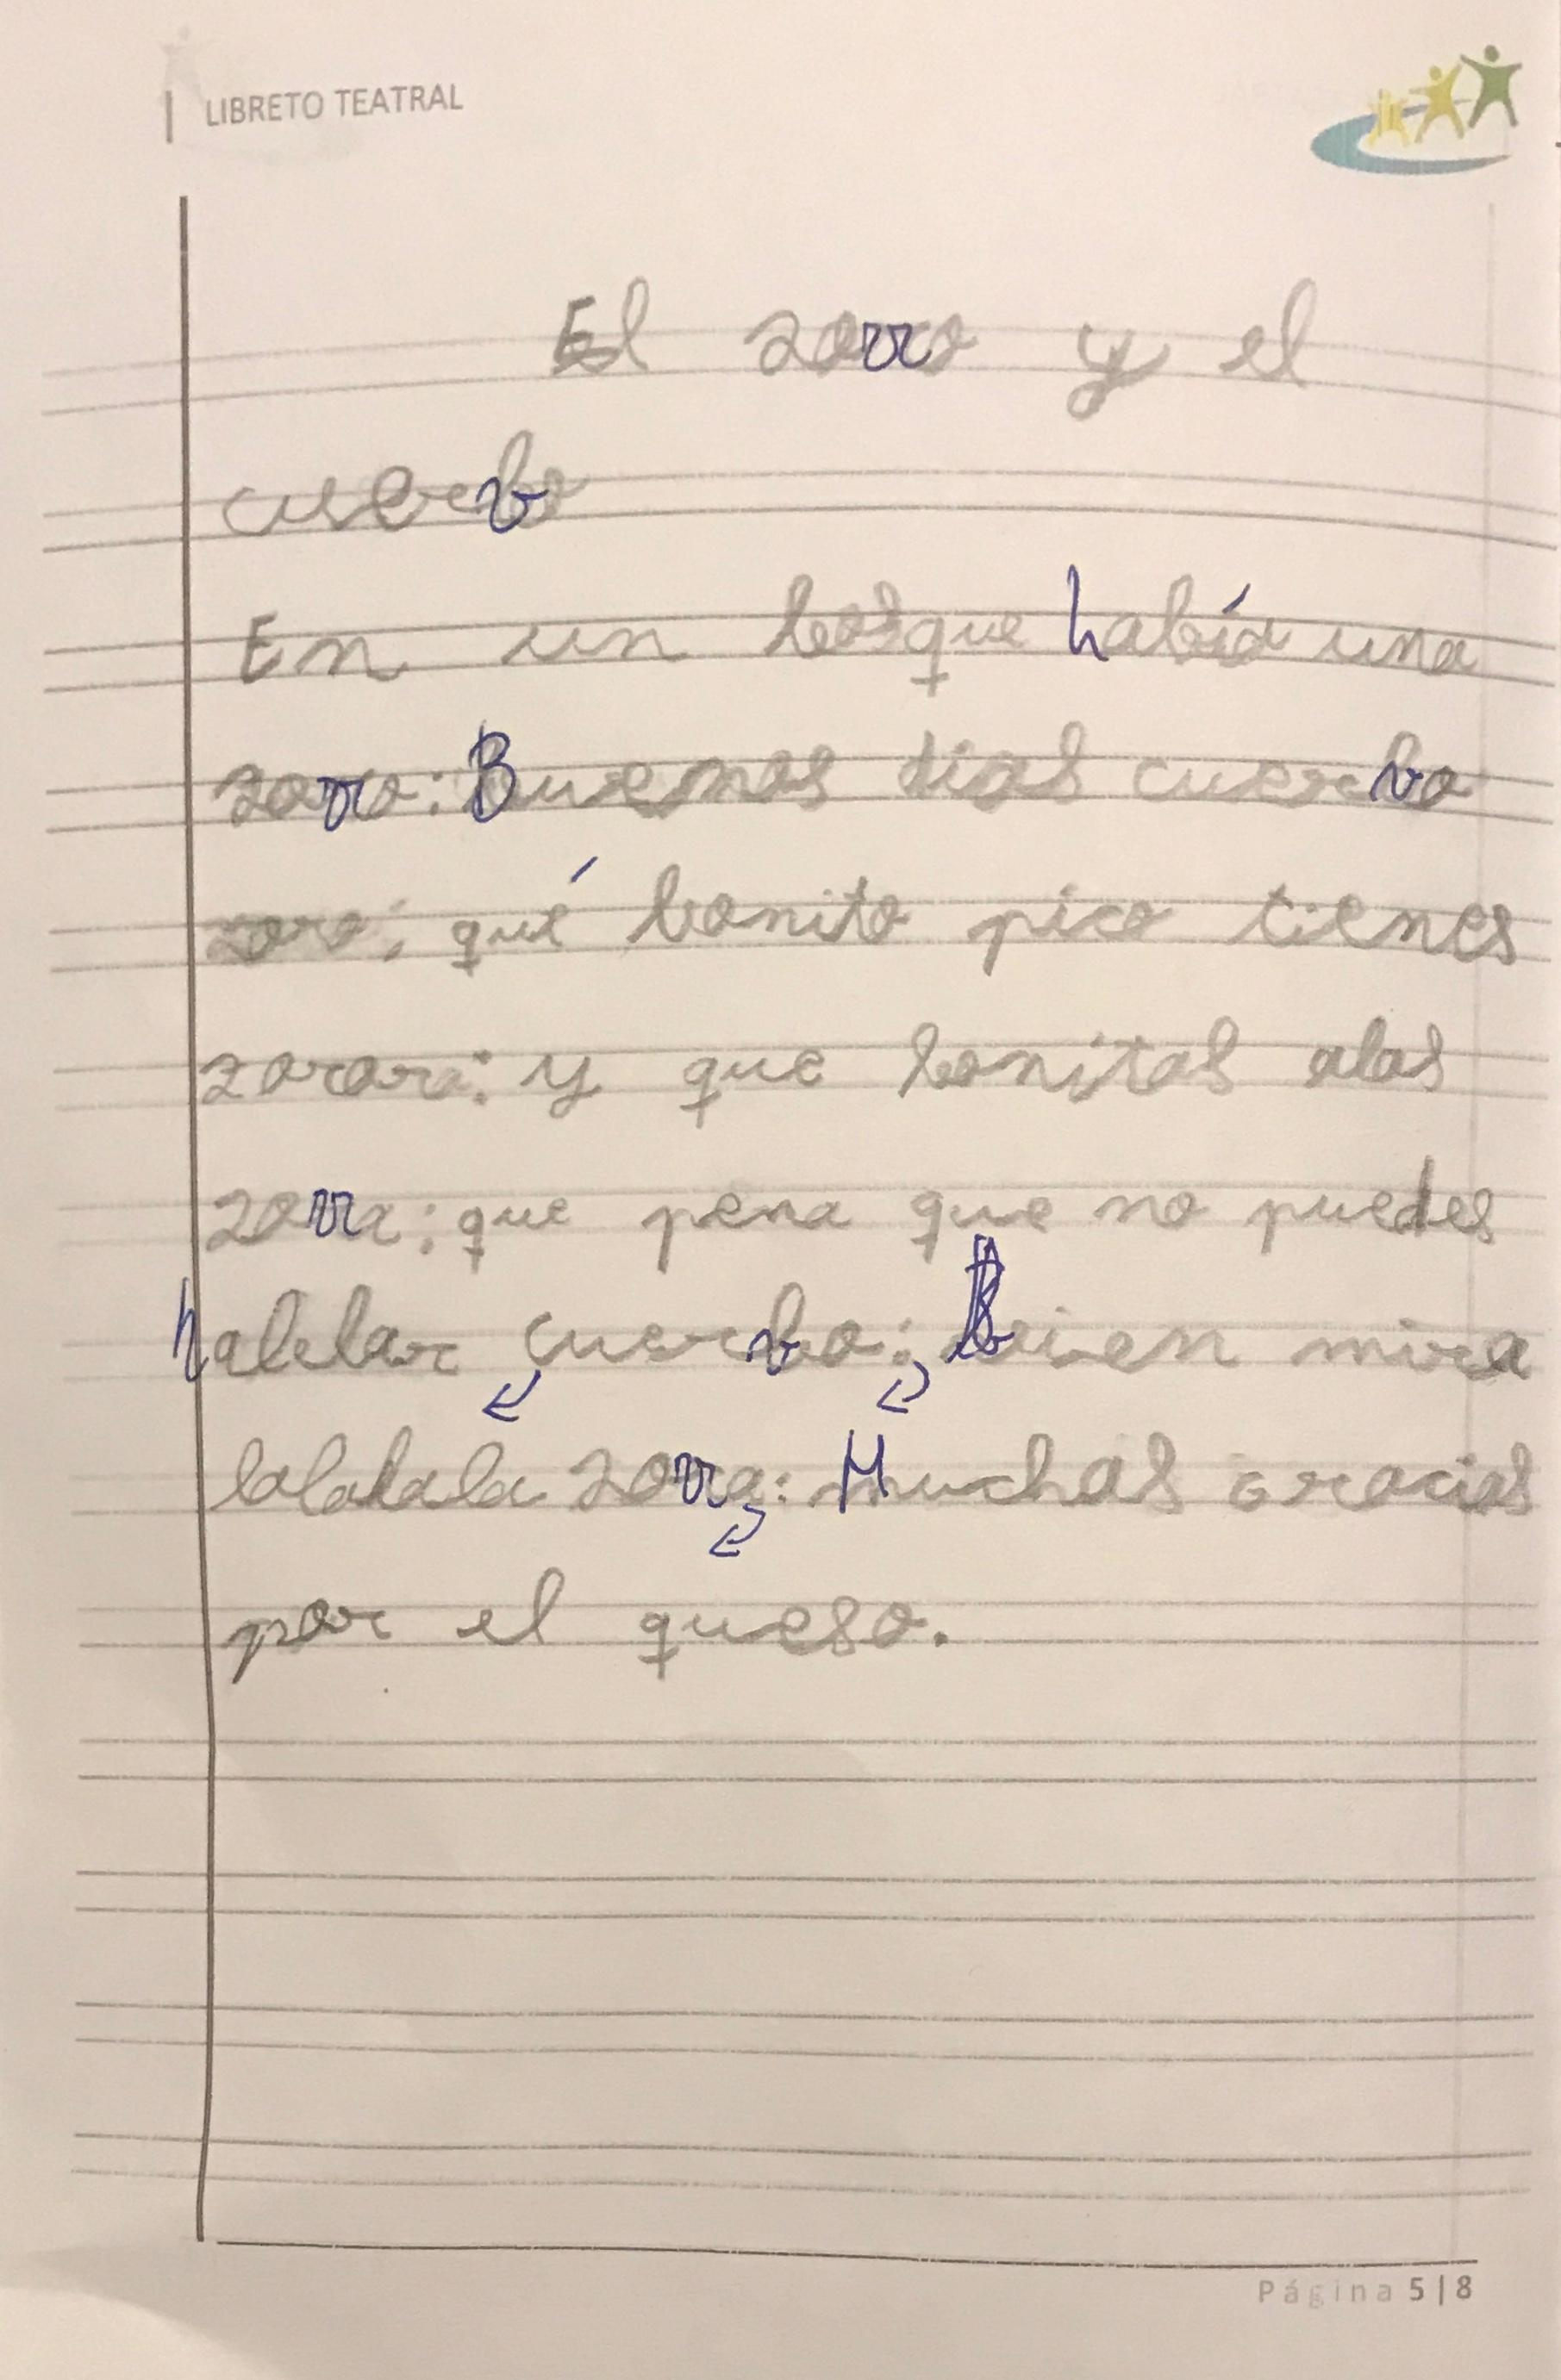 LIBRETO TEATRAL
El zorro y el
cuervo
En un bosque había una
zorro: Buenos dias cuervo
zoro: qué bonito pico tienes
zorora: y que bonitas alas
zorra: que pena que no puedes
hablar cuervo: Bien mira
lalalala zorra: Muchas gracias
por el queso.
Página 5|8